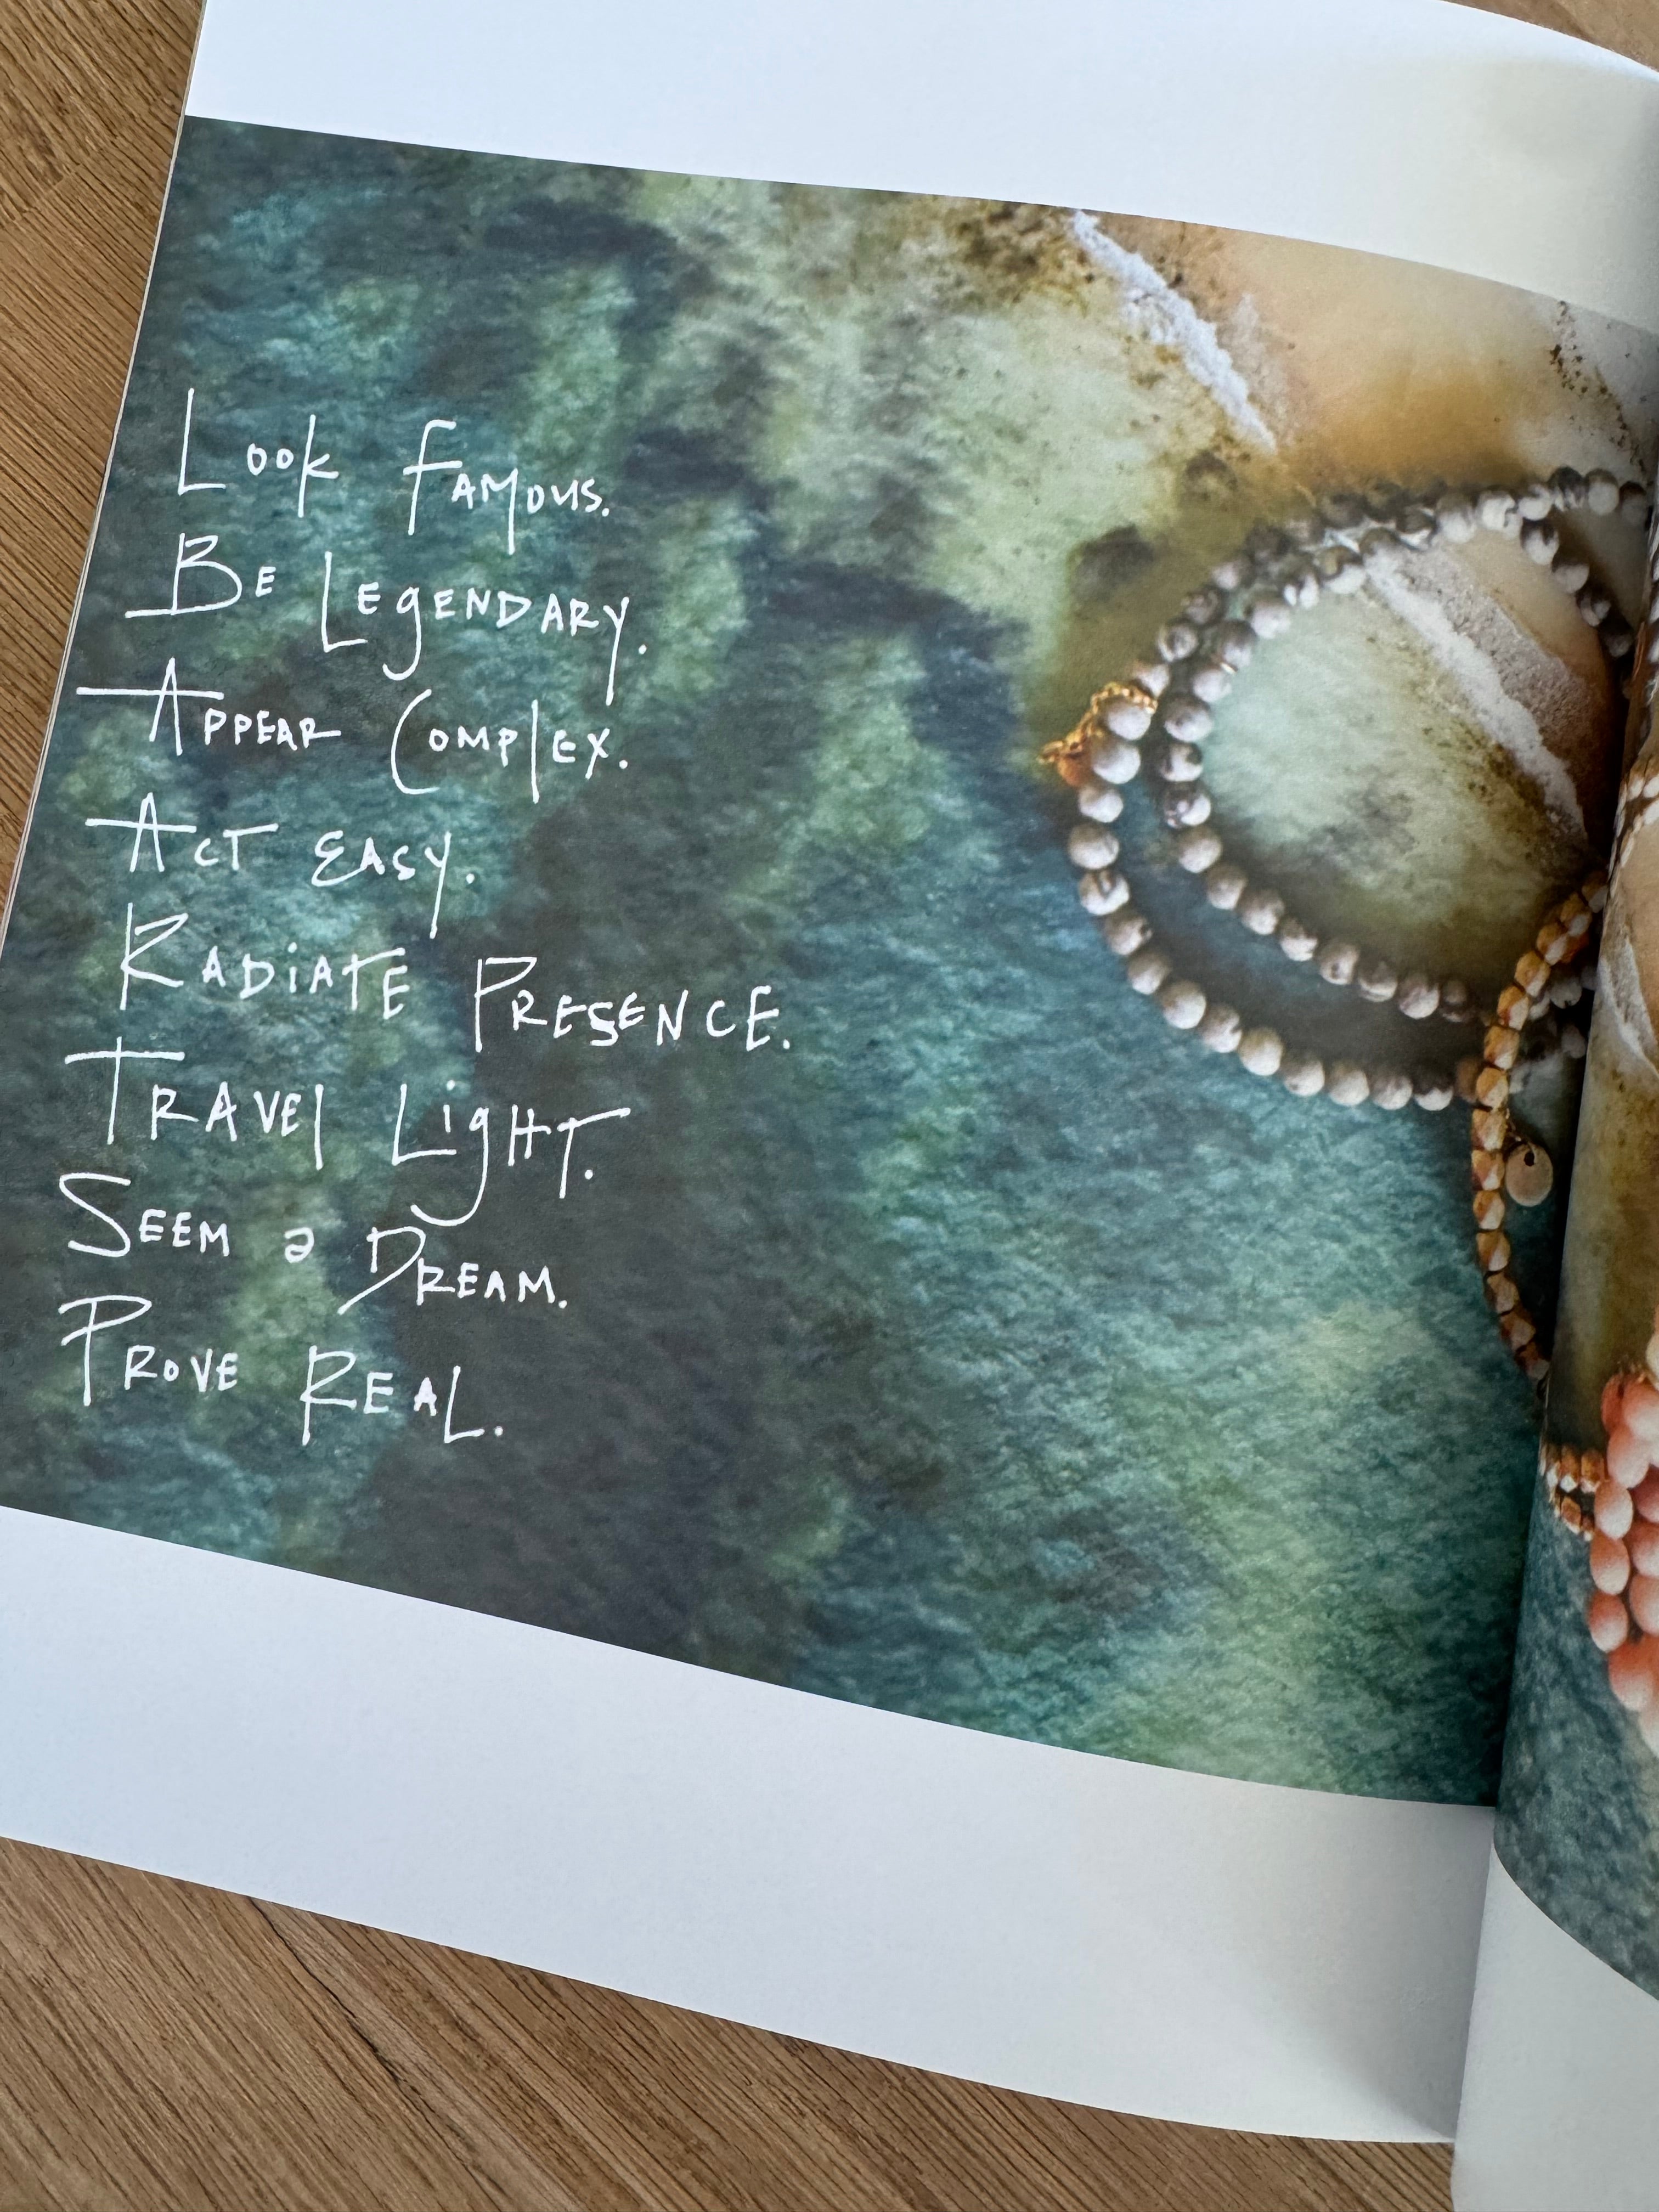 Look Famous.
Be Legendary.
Appear Complex.
Act Easy.
Radiate Presence.
Travel Light.
Seem a Dream.
Prove Real.